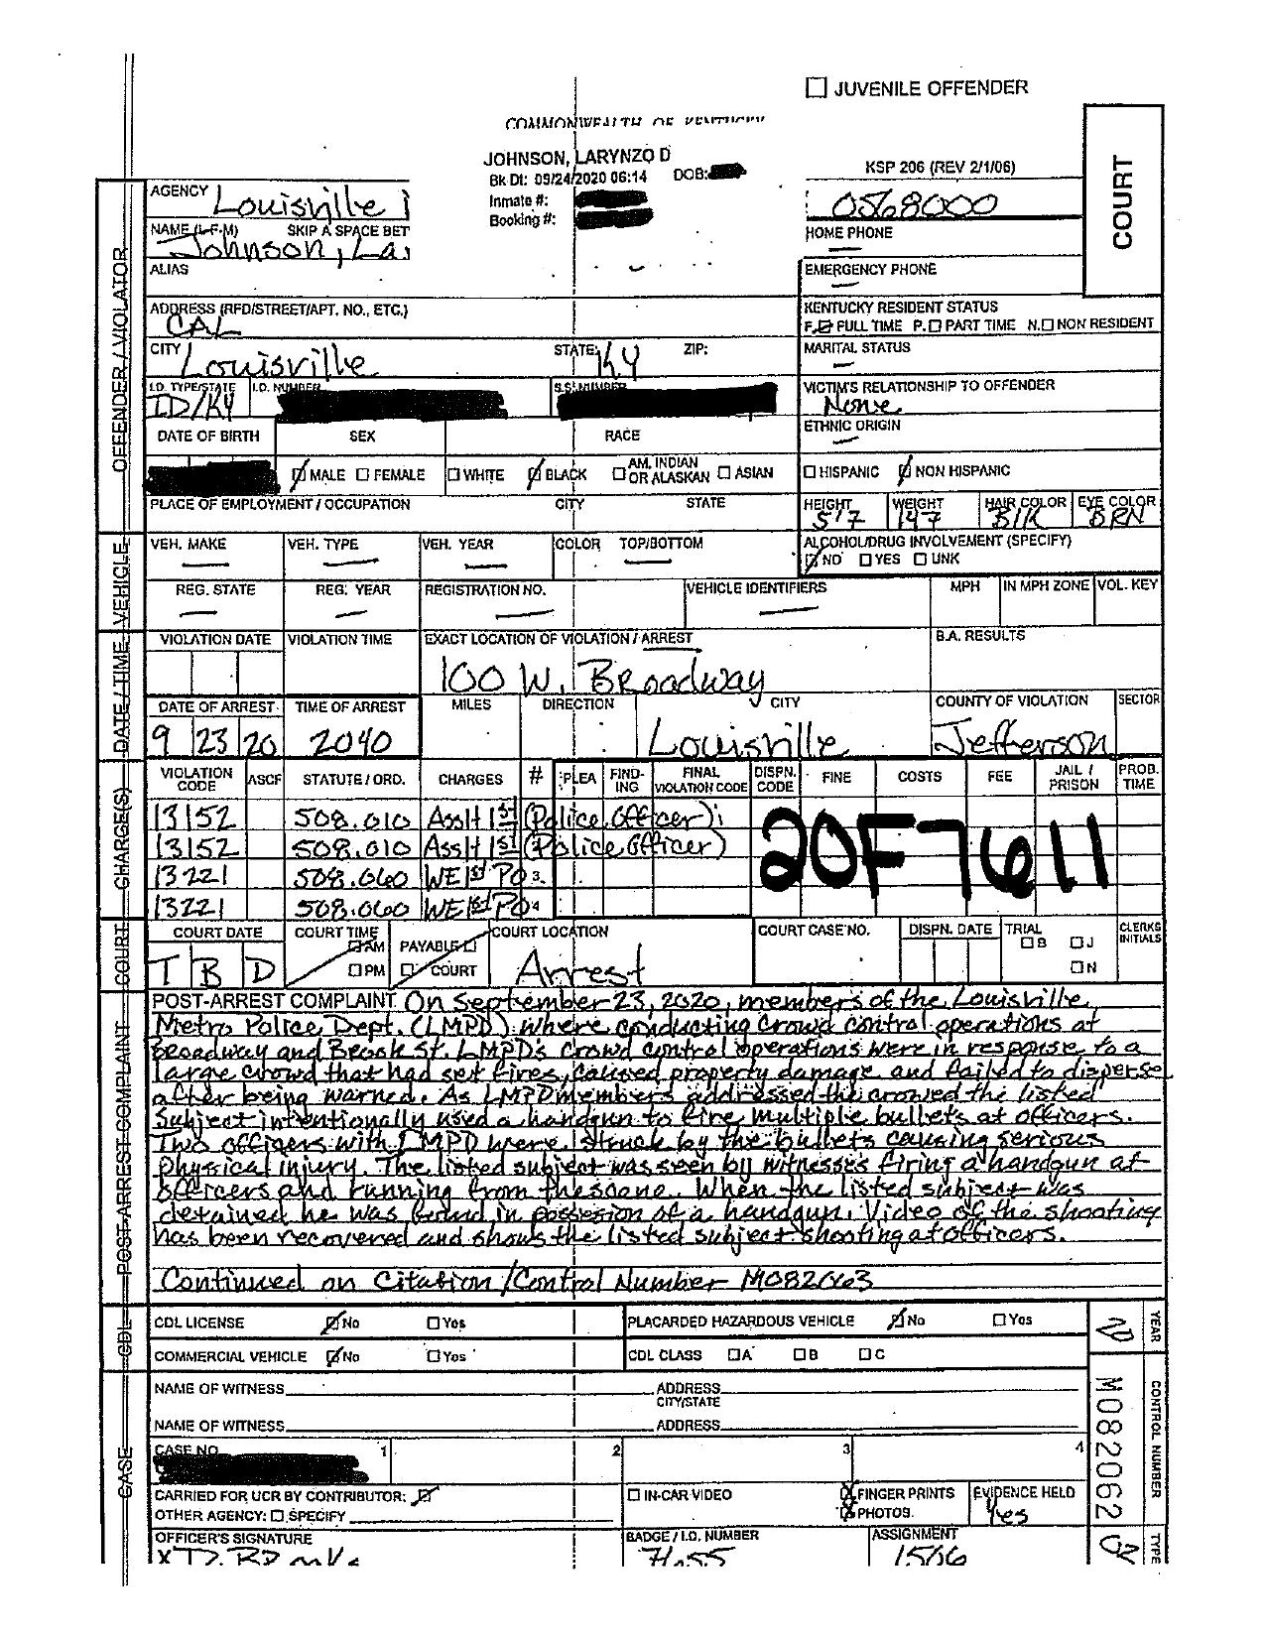 JUVENILE OFFENDER
COMMONWEALTH OF KENTUCKY
JOHNSON, LARYNZO D
Bk Dt: 09/24/2020 06:14 DOB:
Inmate #:
Booking #:
KSP 206 (REV 2/1/06)
COURT
AGENCY Louisville
0568000
NAME (L-F-M) SKIP A SPACE BET
Johnson, La
HOME PHONE
ALIAS
EMERGENCY PHONE
ADDRESS (RFD/STREET/APT. NO., ETC.)
CAL
KENTUCKY RESIDENT STATUS
F. FULL TIME P. PART TIME N. NON RESIDENT
CITY Louisville STATE: Ky ZIP:
MARITAL STATUS
I.D. TYPE/STATE I.D. NUMBER S.S. NUMBER
ID/KY
VICTIM'S RELATIONSHIP TO OFFENDER
None
ETHNIC ORIGIN
DATE OF BIRTH SEX RACE
MALE FEMALE WHITE BLACK AM. INDIAN OR ALASKAN ASIAN
HISPANIC NON HISPANIC
PLACE OF EMPLOYMENT / OCCUPATION CITY STATE
HEIGHT WEIGHT HAIR COLOR EYE COLOR
5'7 147 Blk BRN
VEH. MAKE VEH. TYPE VEH. YEAR COLOR TOP/BOTTOM
ALCOHOL/DRUG INVOLVEMENT (SPECIFY)
NO YES UNK
REG. STATE REG. YEAR REGISTRATION NO. VEHICLE IDENTIFIERS MPH IN MPH ZONE VOL. KEY
VIOLATION DATE VIOLATION TIME EXACT LOCATION OF VIOLATION / ARREST B.A. RESULTS
100 W. Broadway
DATE OF ARREST TIME OF ARREST MILES DIRECTION CITY COUNTY OF VIOLATION SECTOR
9 23 20 2040 Louisville Jefferson
VIOLATION CODE ASCF STATUTE / ORD. CHARGES # PLEA FINDING FINAL VIOLATION CODE DISPN. CODE FINE COSTS FEE JAIL / PRISON PROB. TIME
13152 508.010 Asslt 1st (Police Officer)
13152 508.010 Asslt 1st (Police Officer)
13221 508.060 WE 1st PO 3
13221 508.060 WE 1st PO 4
20F7611
COURT DATE COURT TIME AM PM PAYABLE COURT COURT LOCATION COURT CASE NO. DISPN. DATE TRIAL B J N CLERKS INITIALS
T B D Arrest
POST-ARREST COMPLAINT On September 23, 2020, members of the Louisville
Metro Police Dept. (LMPD) where conducting crowd control operations at
Broadway and Brook St. LMPD's crowd control operations were in response to a
large crowd that had set fires, caused property damage and failed to disperse
after being warned. As LMPD members addressed the crowed the listed
subject intentionally used a handgun to fire multiple bullets at officers.
Two officers with LMPD were struck by the bullets causing serious
physical injury. The listed subject was seen by witnesses firing a handgun at
officers and running from the scene. When the listed subject was
detained he was found in possesion of a handgun. Video of the shooting
has been recovered and shows the listed subject shooting at officers.
Continued on Citation/Control Number M082063
CDL LICENSE No Yes PLACARDED HAZARDOUS VEHICLE No Yes
COMMERCIAL VEHICLE No Yes CDL CLASS A B C
NAME OF WITNESS ADDRESS
CITY/STATE
NAME OF WITNESS ADDRESS
CASE NO. 1 2 3 4
CARRIED FOR UCR BY CONTRIBUTOR: IN-CAR VIDEO FINGER PRINTS EVIDENCE HELD
OTHER AGENCY: SPECIFY PHOTOS Yes
OFFICER'S SIGNATURE BADGE / I.D. NUMBER ASSIGNMENT
OFFENDER / VIOLATOR
VEHICLE
DATE / TIME
CHARGE(S)
COURT
POST-ARREST COMPLAINT
CDL
CASE
YEAR 20
CONTROL NUMBER M082062
TYPE 02